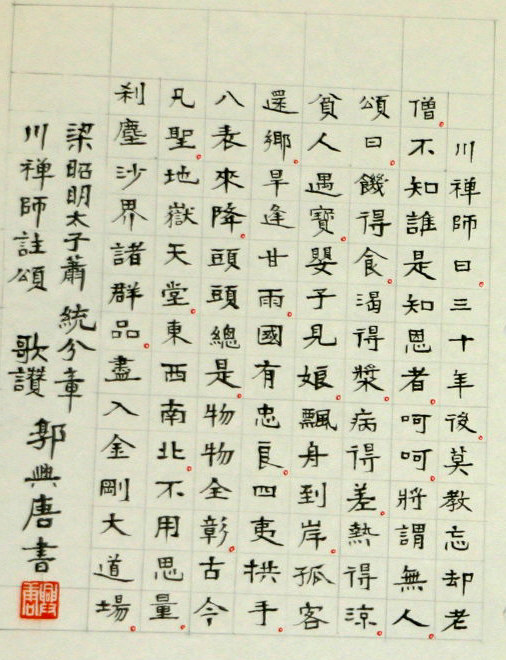 川禪師曰。三十年後。莫教忘却老
僧。不知誰是知恩者。呵呵。將謂無人。
頌曰。饑得食。渴得漿。病得差。熱得涼。
貧人遇寶。嬰子見娘。飄舟到岸。孤客
還鄉。旱逢甘雨。國有忠良。四夷拱手。
八表來降。頭頭總是。物物全彰。古今
凡聖。地獄天堂。東西南北。不用思量。
刹塵沙界諸群品。盡入金剛大道場。
梁昭明太子蕭統分章
川禪師註頌 歌讚 郭興唐書
興唐